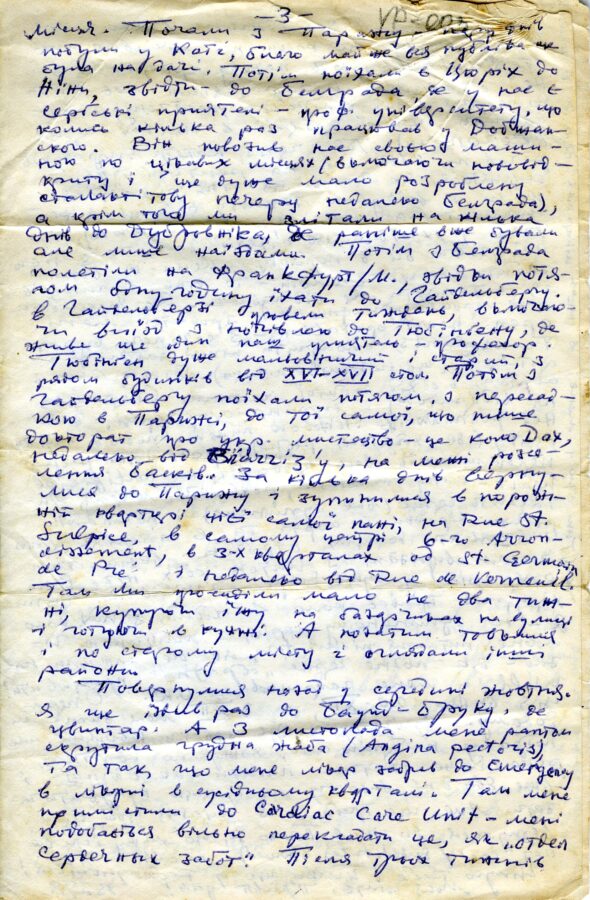 -3-
місяч. Почали з Парижу -
побули у Каті, благо майже вся публіка
була на дачі. Потім поїхали в Цюріх до
Ніни, звідти - до Белграда де у нас є
сербські приятелі - проф. університету, що
колись кілька раз працював у Добжан-
ского. Він повозив нас своєю маши-
ною по цікавих місцях (включаючи нововід-
криту і ще дуже мало розроблену
сталактітову печеру недалеко Белграда),
а крім того ми злітали на кілька
днів до Дубровніка, де раніше вже бували
але лише наїздами. Потім з Белграда
полетіли на Франкфурт/М., звідки потя-
гом одну годину їхати до Гайдельбергу.
В Гайдельберзі провели тиждень, включаю-
чи виїзд з ночівлею до Тюбінгену, де
живе ще один наш приятель - професор.
Тюбінген дуже мальовничий і старий, з
рядом будинків від XVI-XVII стол. Потім з
Гайдельбергу поїхали потягом, з пересад-
кою в Парижі, до тої самої, що пише
докторат про укр. мистецтво - це коло Dax,
недалеко від у, на межі розсе-
лення басків. За кілька днів верну-
лися до Парижу і зупинилися в порож-
ній квартирі цієї самої пані, на Rue St.
Sulpice, в самому центрі 6-го Arron-
dissement, в 3-х кварталах од St. Germain
de Pré і недалеко від Rue de
Там ми просиділи мало не два тиж-
ні, купуючи їжу на базарчиках на вулиці
і готуючи в кухні. А
і по старому місту і оглядали інші
райони.
Повернулися назад у середині жовтня.
Я ще їздив раз до Баунд-Бруку, де
цвинтар. А 3 листопада мене раптом
скрутила грудна жаба (Angina pectoris),
Та так, що мене лікар забрав до Emergency
в лікарні в сусідньому кварталі. Там мене
примістили до Cardiac Care Unit - мені
подобається вільно перекладати це, як „отдел
сердечных забот". Після трьох тижнів